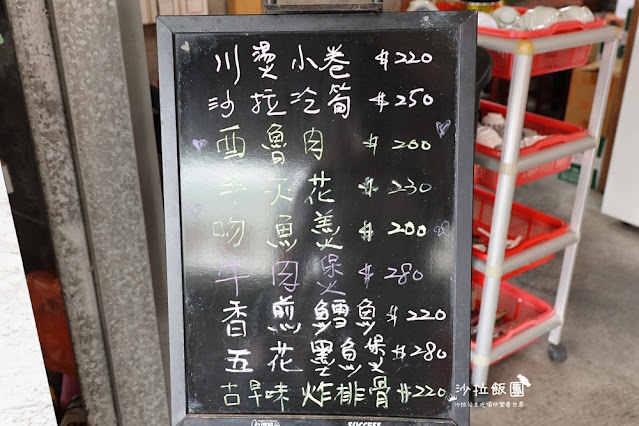 川燙小卷 $220
沙拉冷筍 $250
西魯肉 $200
牛灭花 $230
吻魚羹 $200
牛肉煲 $280
香煎鱈魚 $220
五花墨魚煲 $280
古早味炸排骨 $220
SUCCESS
沙拉飯團